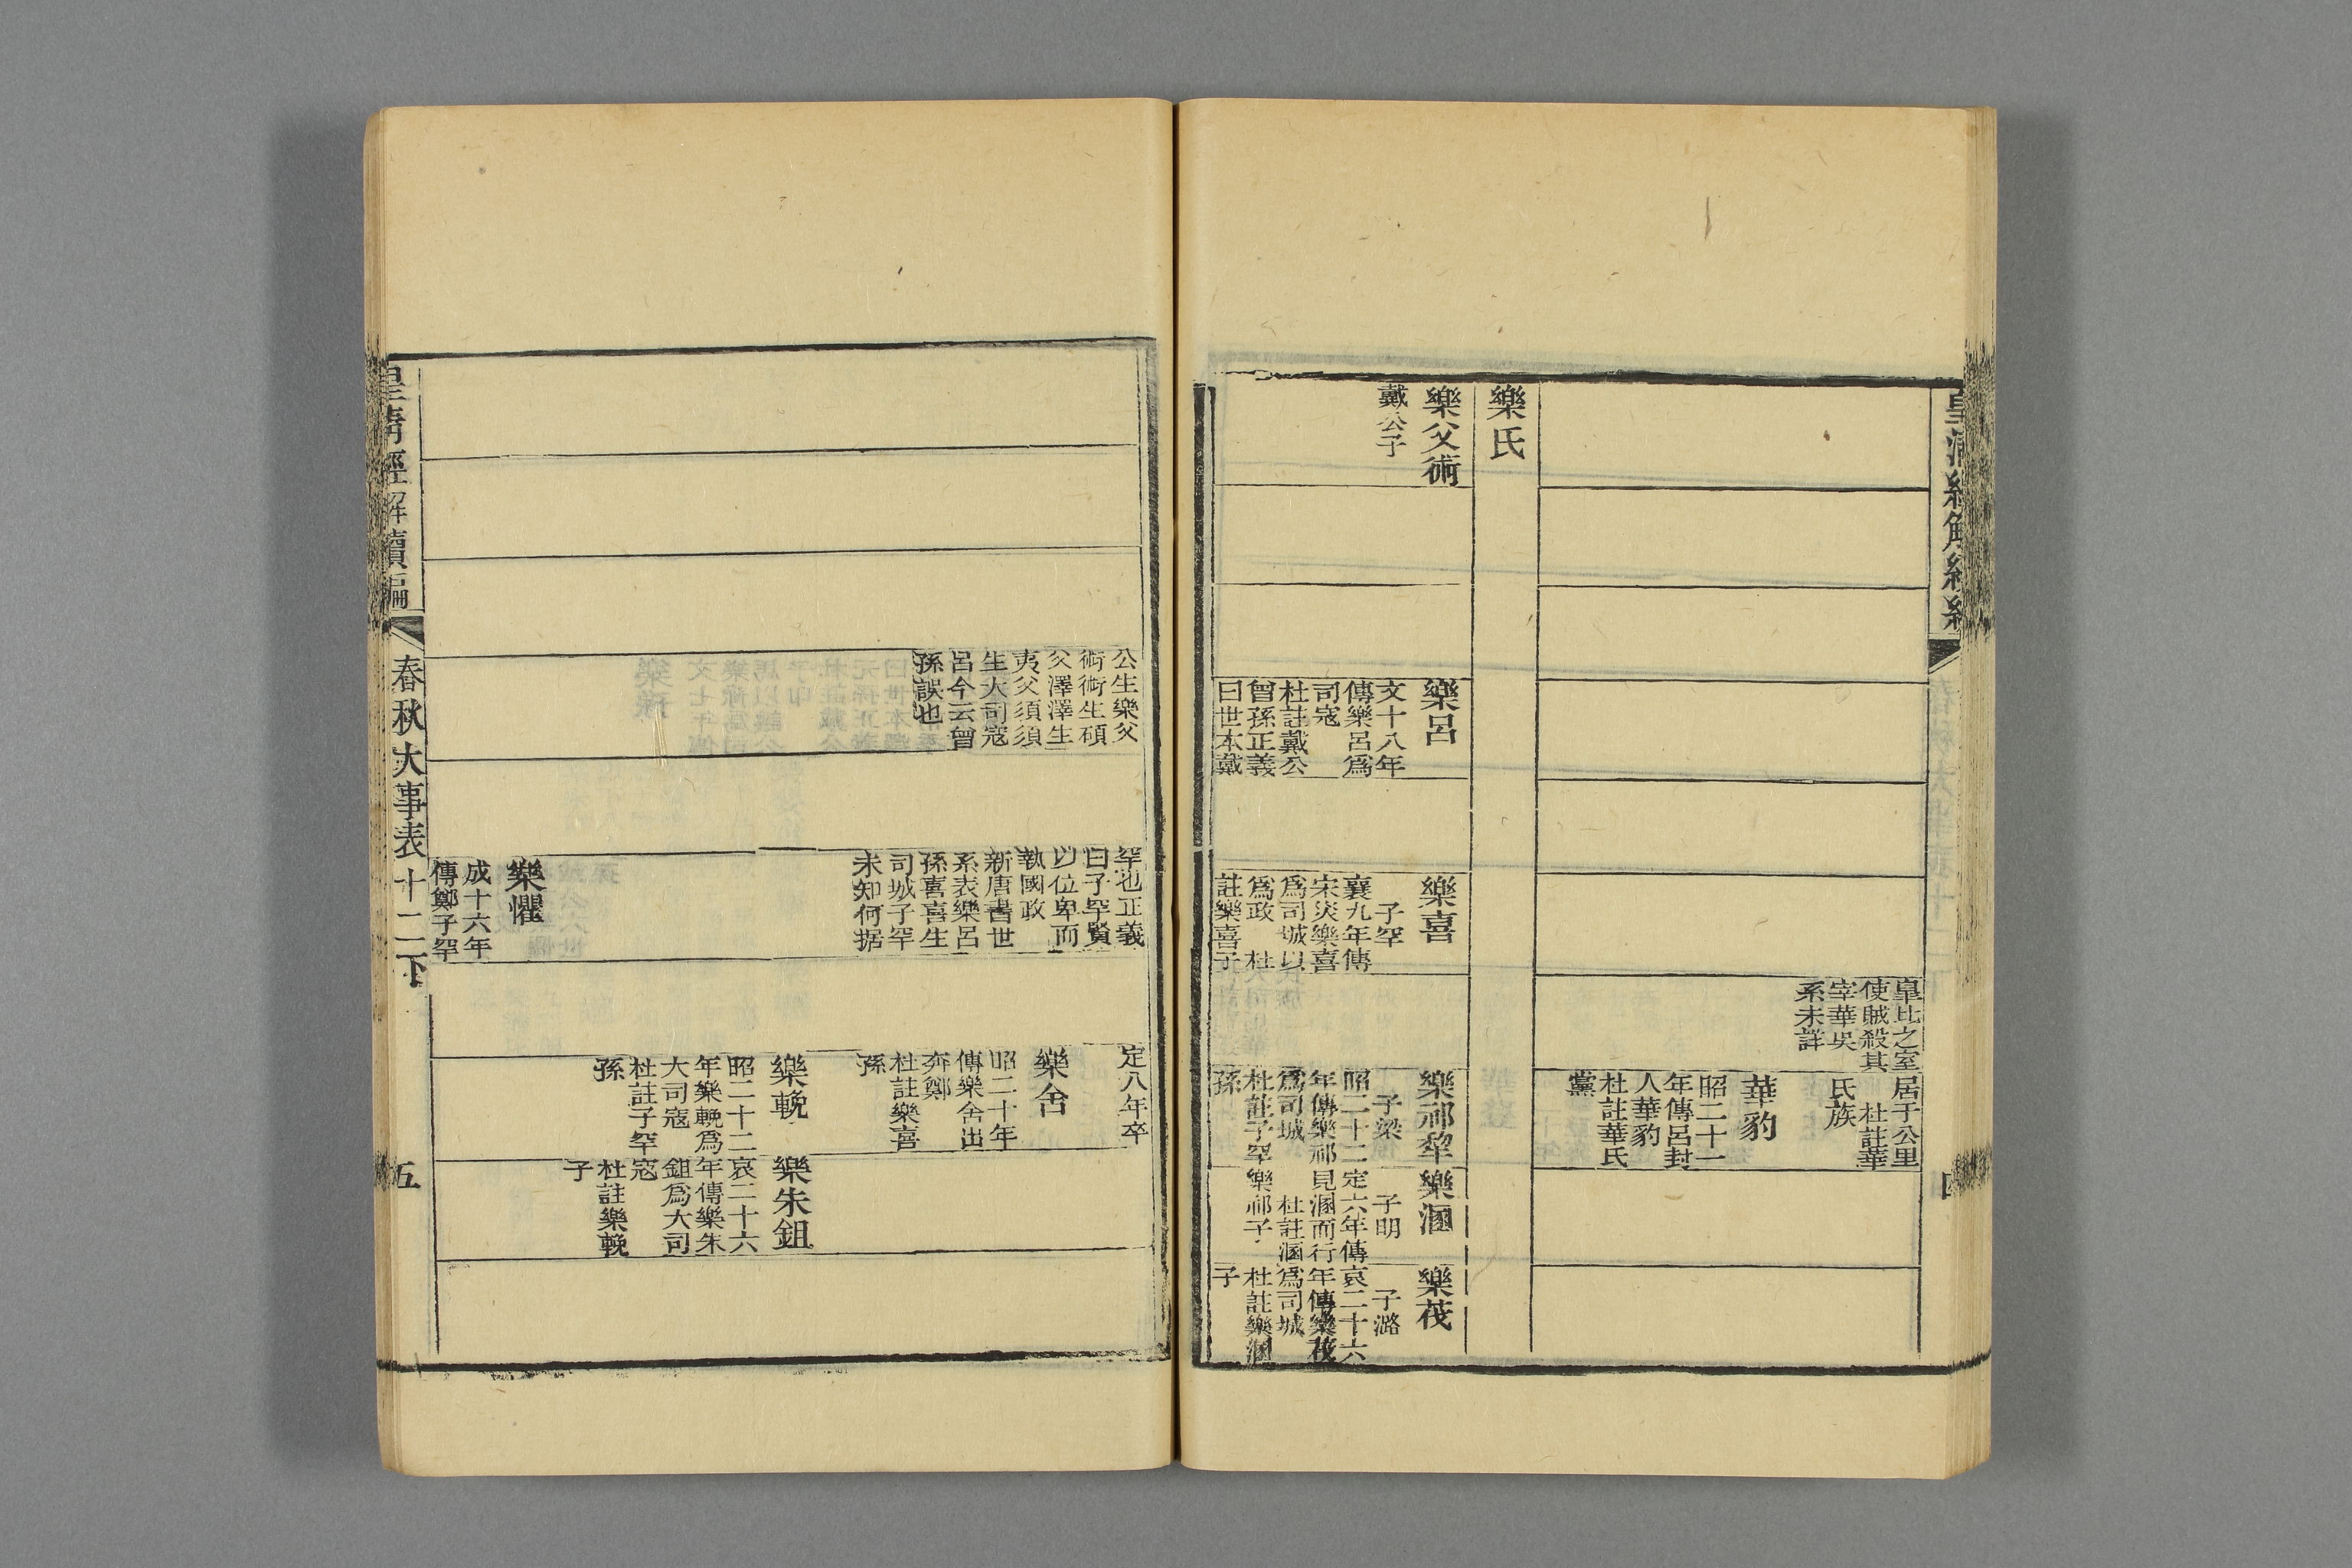 皇比之室
使賊殺其
宰華吳
系未詳
居于公里
杜註華
氏族
華豹
昭二十一
年傳呂封
人華豹
杜註華氏
黨
樂氏
樂父術
戴公子
樂呂
文十八年
傳樂呂爲
司寇
杜註戴公
曾孫正義
曰世本戴
樂喜
子罕
襄九年傳
宋災樂喜
爲司城以
爲政 杜
註樂喜子
樂祁犂
子梁
昭二十二
年傳樂祁
爲司城
杜註子罕
孫
樂溷
子明
定六年傳
見溷而行
杜註溷
樂祁子
樂茷
子潞
哀二十六
年傳樂茷
爲司城
杜註樂溷
子
公生樂父
術術生碩
父澤澤生
夷父須須
生大司寇
呂今云曾
孫誤也
罕也正義
曰子罕賢
以位卑而
執國政
新唐書世
系表樂呂
孫喜喜生
司城子罕
未知何据
樂懼
成十六年
傳鄭子罕
定八年卒
樂舍
昭二十年
傳樂舍出
奔鄭
杜註樂喜
孫
樂輓
昭二十二
年樂輓爲
大司寇
杜註子罕
孫
樂朱鉏
哀二十六
年傳樂朱
鉏爲大司
寇
杜註樂輓
子
皇清經解續編
春秋大事表十二下
五